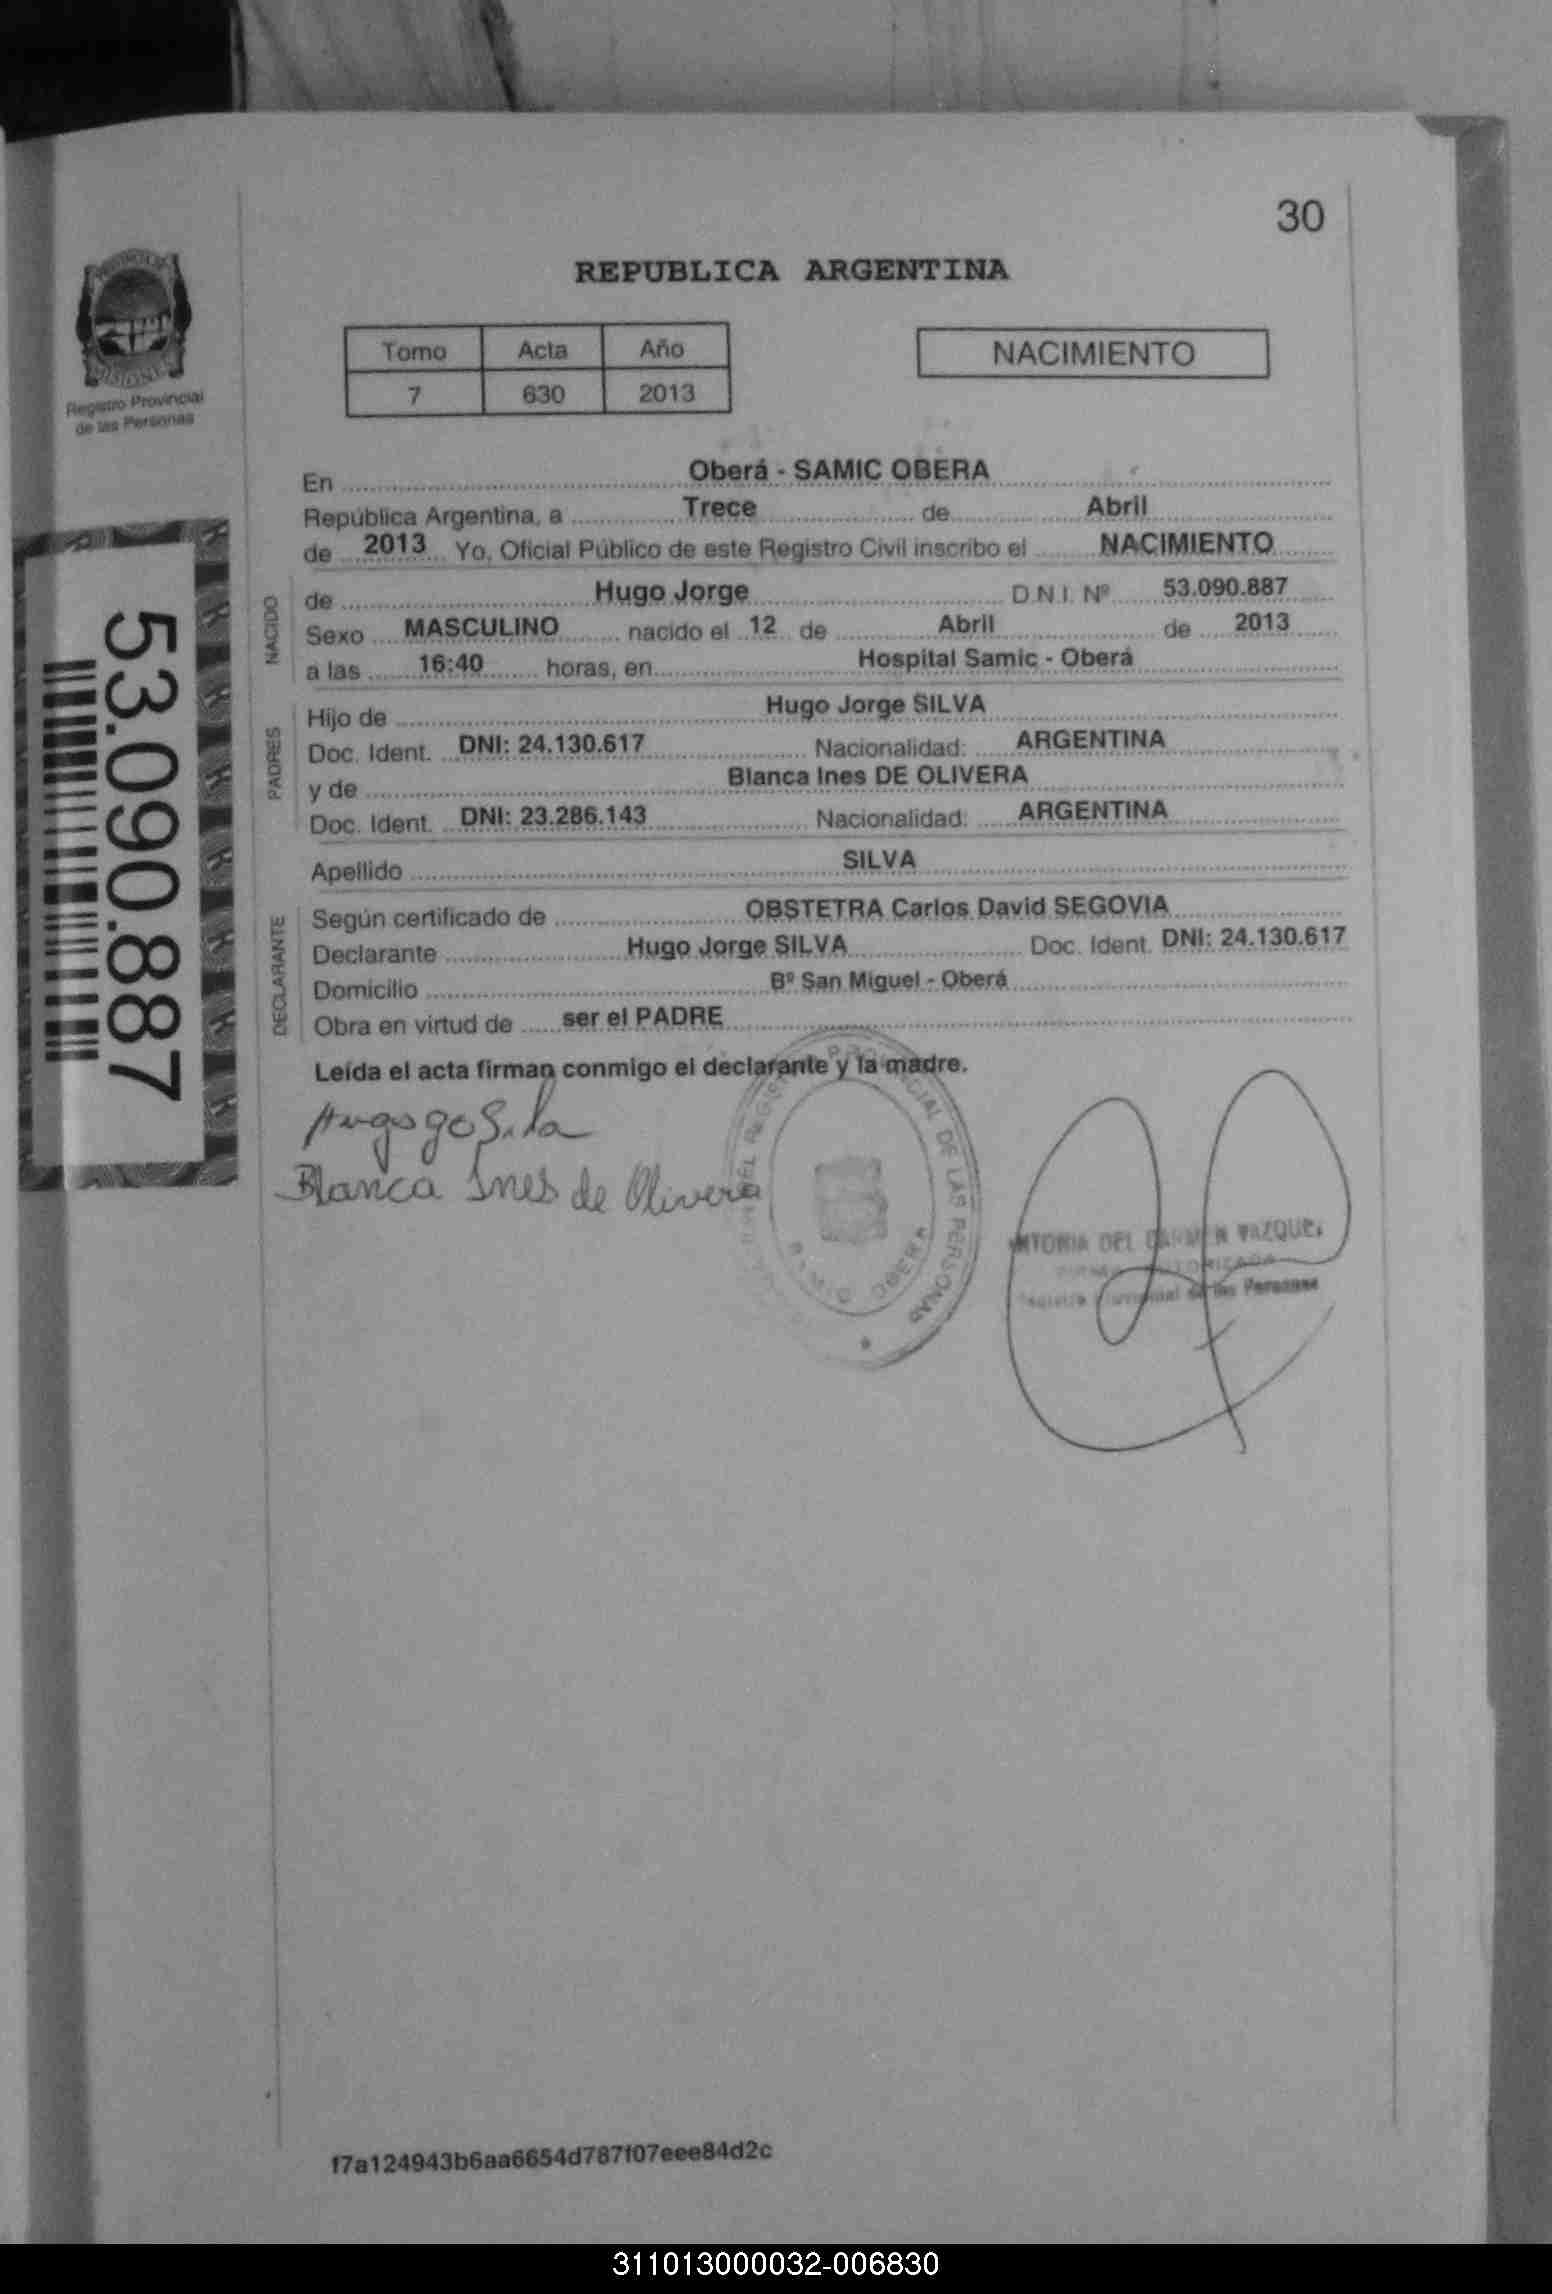 30
REPUBLICA ARGENTINA
Tomo Acta Año
7 630 2013
NACIMIENTO
Registro Provincial
de las Personas
53.090.887
En Oberá - SAMIC OBERA
República Argentina, a Trece de Abril
de 2013 Yo, Oficial Público de este Registro Civil inscribo el NACIMIENTO
NACIDO
de Hugo Jorge D.N.I. Nº 53.090.887
Sexo MASCULINO nacido el 12 de Abril de 2013
a las 16:40 horas, en Hospital Samic - Oberá
PADRES
Hijo de Hugo Jorge SILVA
Doc. Ident. DNI: 24.130.617 Nacionalidad: ARGENTINA
y de Blanca Ines DE OLIVERA
Doc. Ident. DNI: 23.286.143 Nacionalidad: ARGENTINA
Apellido SILVA
DECLARANTE
Según certificado de OBSTETRA Carlos David SEGOVIA
Declarante Hugo Jorge SILVA Doc. Ident. DNI: 24.130.617
Domicilio Bº San Miguel - Oberá
Obra en virtud de ser el PADRE
Leída el acta firman conmigo el declarante y la madre.
Blanca Ines de Olivera
DEL CARMEN VAZQUE
de las Personas
DE LAS PERSONAS
OBERA
f7a124943b6aa6654d787f07eee84d2c
311013000032-006830